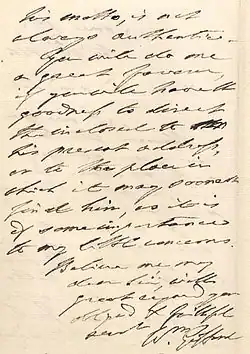 his motto, is not
always authentic.
You will do me
a great favour,
if you will have the
goodness to direct
the inclosed to
his present address,
or to the place in
which it may soonest
find him, as it is
of some importance
to my little concerns.
Believe me my
dear Sir, with
great regard your
obliged & faithful
servt Wm
Gifford